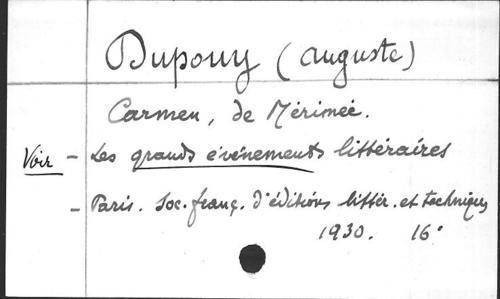 Dupouy (Auguste)
Carmen, de Mérimée.
Voir - Les grands événements littéraires
- Paris. Soc. franç. d'éditions littér. et techniques
1930. 16°